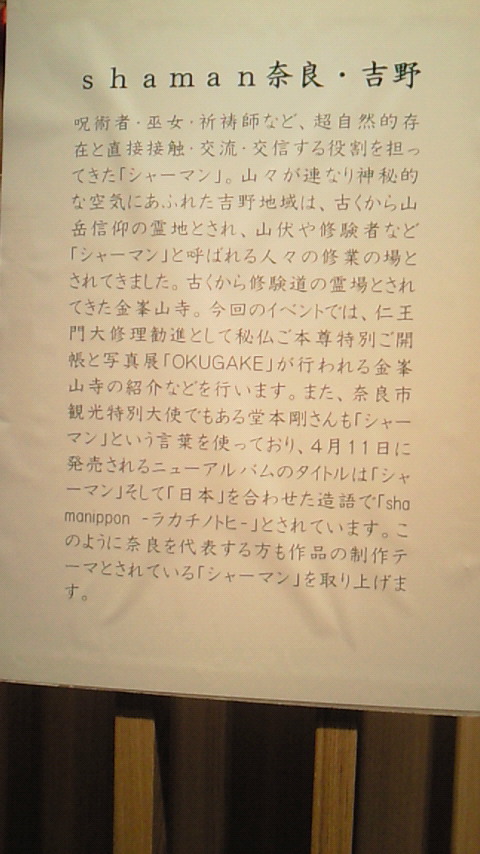 ｓｈａｍａｎ奈良・吉野
呪術者・巫女・祈祷師など、超自然的存
在と直接接触・交流・交信する役割を担っ
てきた「シャーマン」。山々が連なり神秘的
な空気にあふれた吉野地域は、古くから山
岳信仰の霊地とされ、山伏や修験者など
「シャーマン」と呼ばれる人々の修業の場と
されてきました。古くから修験道の霊場とされ
てきた金峯山寺。今回のイベントでは、仁王
門大修理勧進として秘仏ご本尊特別ご開
帳と写真展「OKUGAKE」が行われる金峯
山寺の紹介などを行います。また、奈良市
観光特別大使でもある堂本剛さんも「シャー
マン」という言葉を使っており、4月11日に
発売されるニューアルバムのタイトルは「シャ
ーマン」そして「日本」を合わせた造語で「sha
manippon -ラカチノトヒ-」とされています。こ
のように奈良を代表する方も作品の制作テ
ーマとされている「シャーマン」を取り上げま
す。